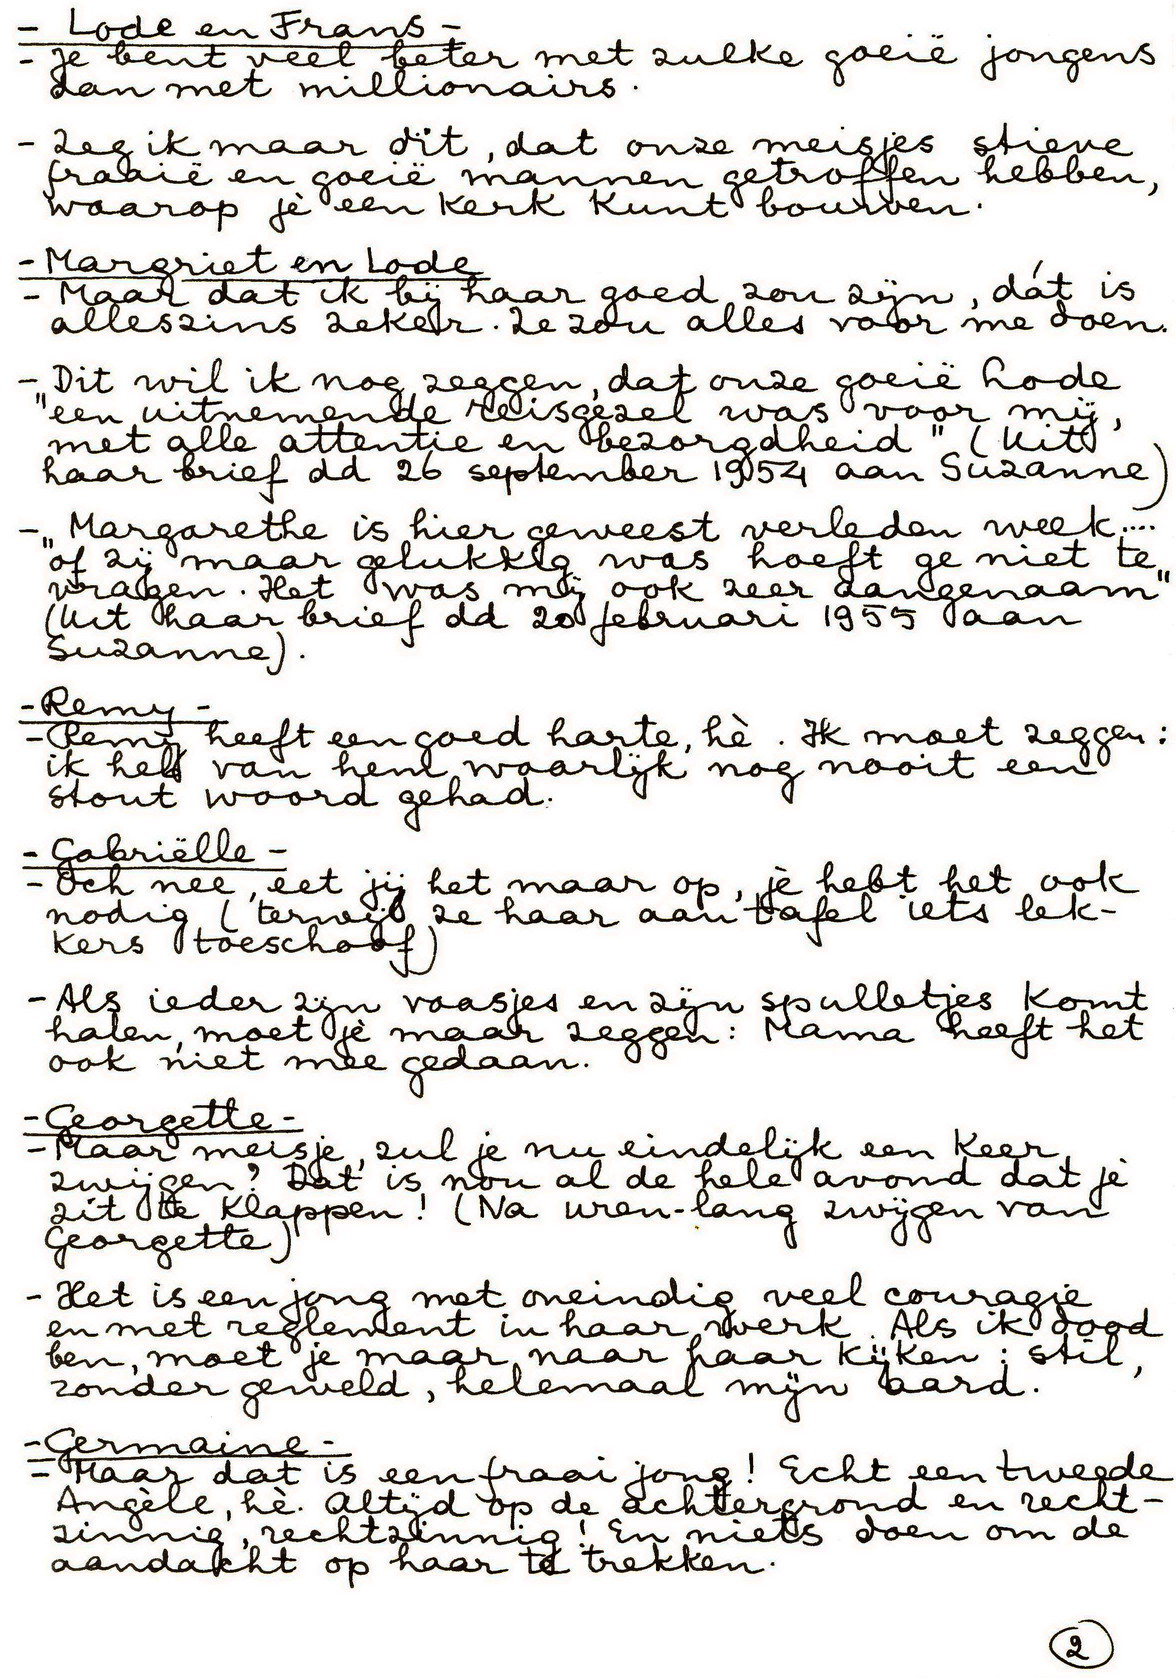 - Lode en Frans -
- Je bent veel beter met zulke goeië jongens
dan met millionairs.
- Zeg ik maar dit, dat onze meisjes stieve
fraaië en goeië mannen getroffen hebben,
waarop jè een kerk kunt bouwen.
- Margriet en Lode
- Maar dat ik bij haar goed zou zijn, dát is
alleszins zeker. Ze zou alles voor me doen.
- Dit wil ik nog zeggen, dat onze goeië Lode
"een uitnemende reisgezel was voor mij,
met alle attentie en bezorgdheid" (Uit
haar brief dd 26 september 1954 aan Suzanne)
- „Margarethe is hier geweest verleden week....
of zij maar gelukkig was hoeft ge niet te
vragen. Het was mij ook zeer aangenaam"
(Uit haar brief dd 20 februari 1955 aan
Suzanne).
- Remy -
- Remy heeft een goed harte, hè. Ik moet zeggen:
ik heb van hem waarlijk nog nooit een
stout woord gehad.
- Gabriëlle -
- Och nee, eet jij het maar op, jè hebt het ook
nodig (terwijl ze haar aan tafel iets lek-
kers toeschoof)
- Als ieder zijn vaasjes en zijn spulletjes komt
halen, moet jè maar zeggen: Mama heeft het
ook niet mee gedaan.
- Georgette -
- Maar meisje, zul je nu eindelijk een keer
zwijgen? Dat is nou al de hele avond dat jè
zit te klappen! (Na uren-lang zwijgen van
Georgette)
- Het is een jong met oneindig veel couragie
en met reglement in haar werk. Als ik dood
ben, moet je maar naar haar kijken: stil,
zonder geweld, helemaal mijn aard.
- Germaine -
- Maar dat is een fraai jong! Echt een tweede
Angèle, hè. Altijd op de achtergrond en recht-
zinnig, rechtzinnig! En niets doen om de
aandacht op haar te trekken.
2